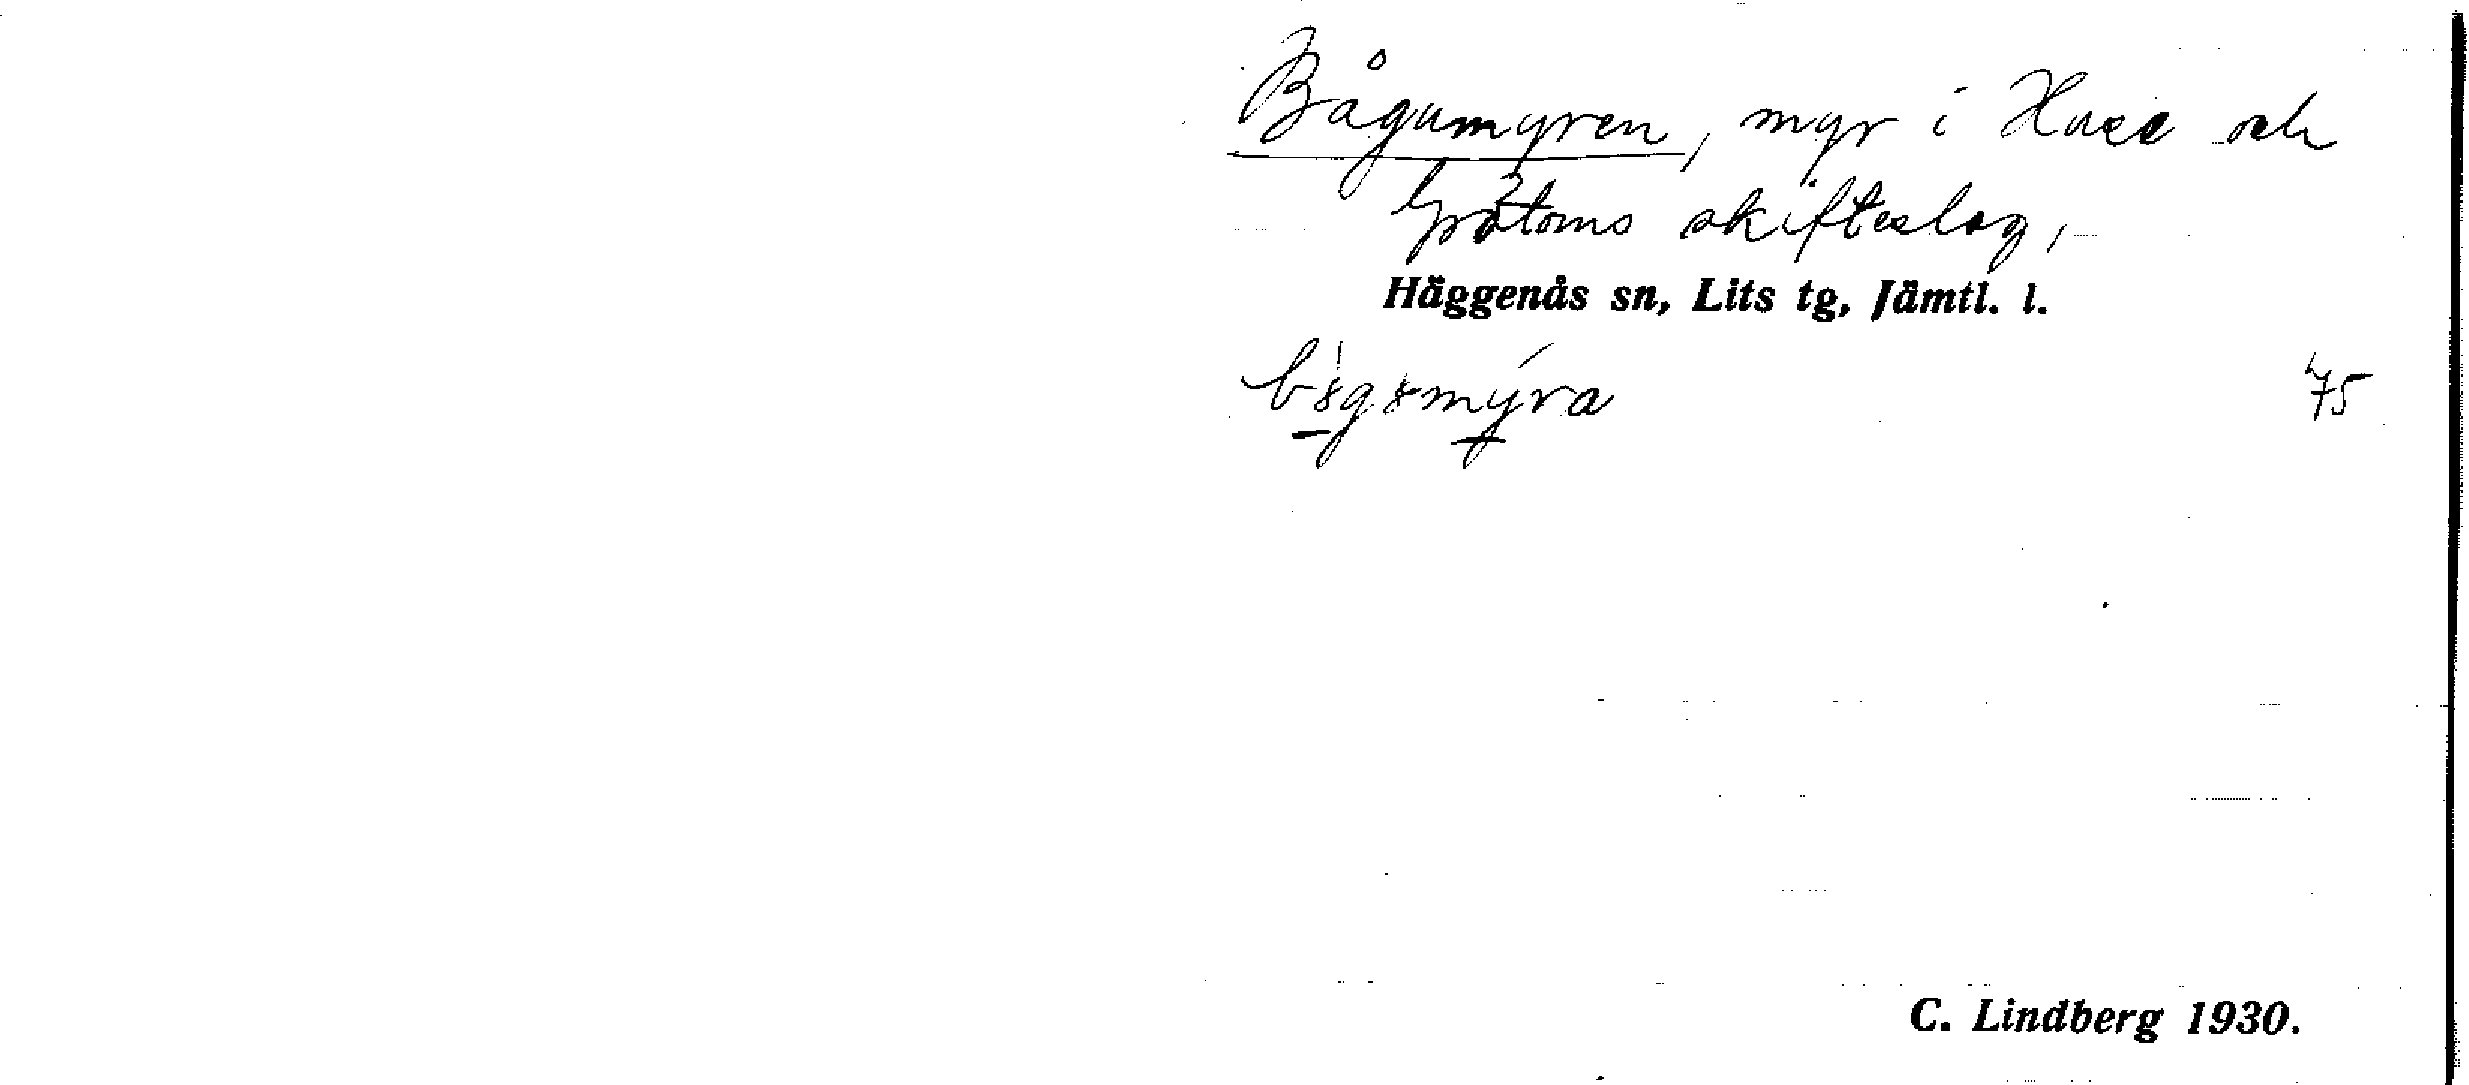 Bågumyren, myr i Huse och
Grötoms skifteslag,
Häggenås sn, Lits tg, Jämtl. l.
75
C. Lindberg 1930.